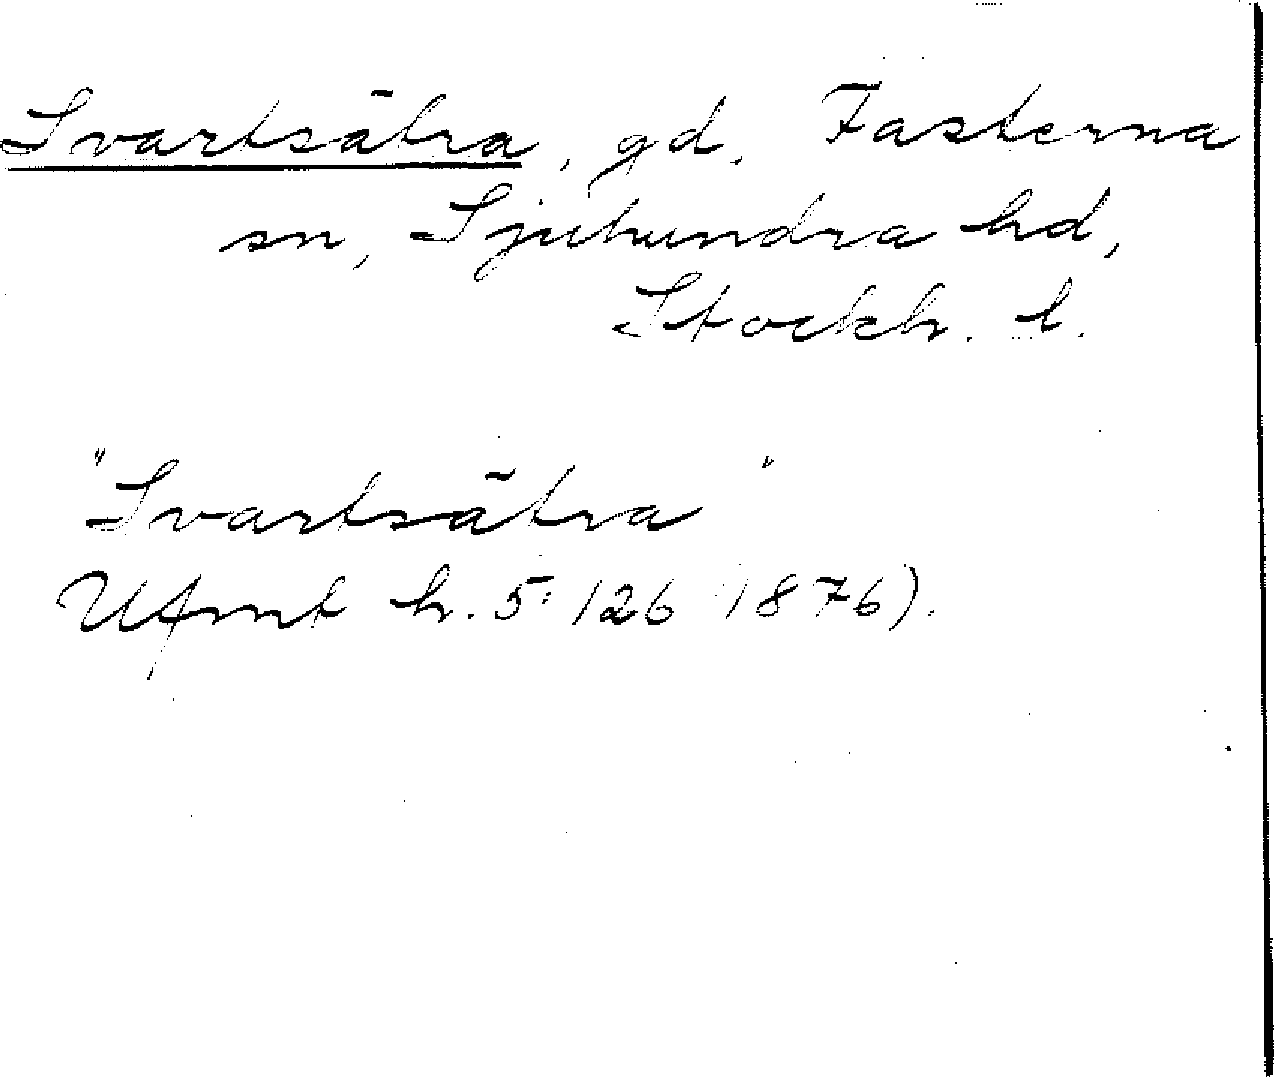 Svartsätra, gd. Fasterna
sn, Sjuhundra hd,
Stockh. l.
"Svartsätra"
Ufmt h. 5: 126 (1876).